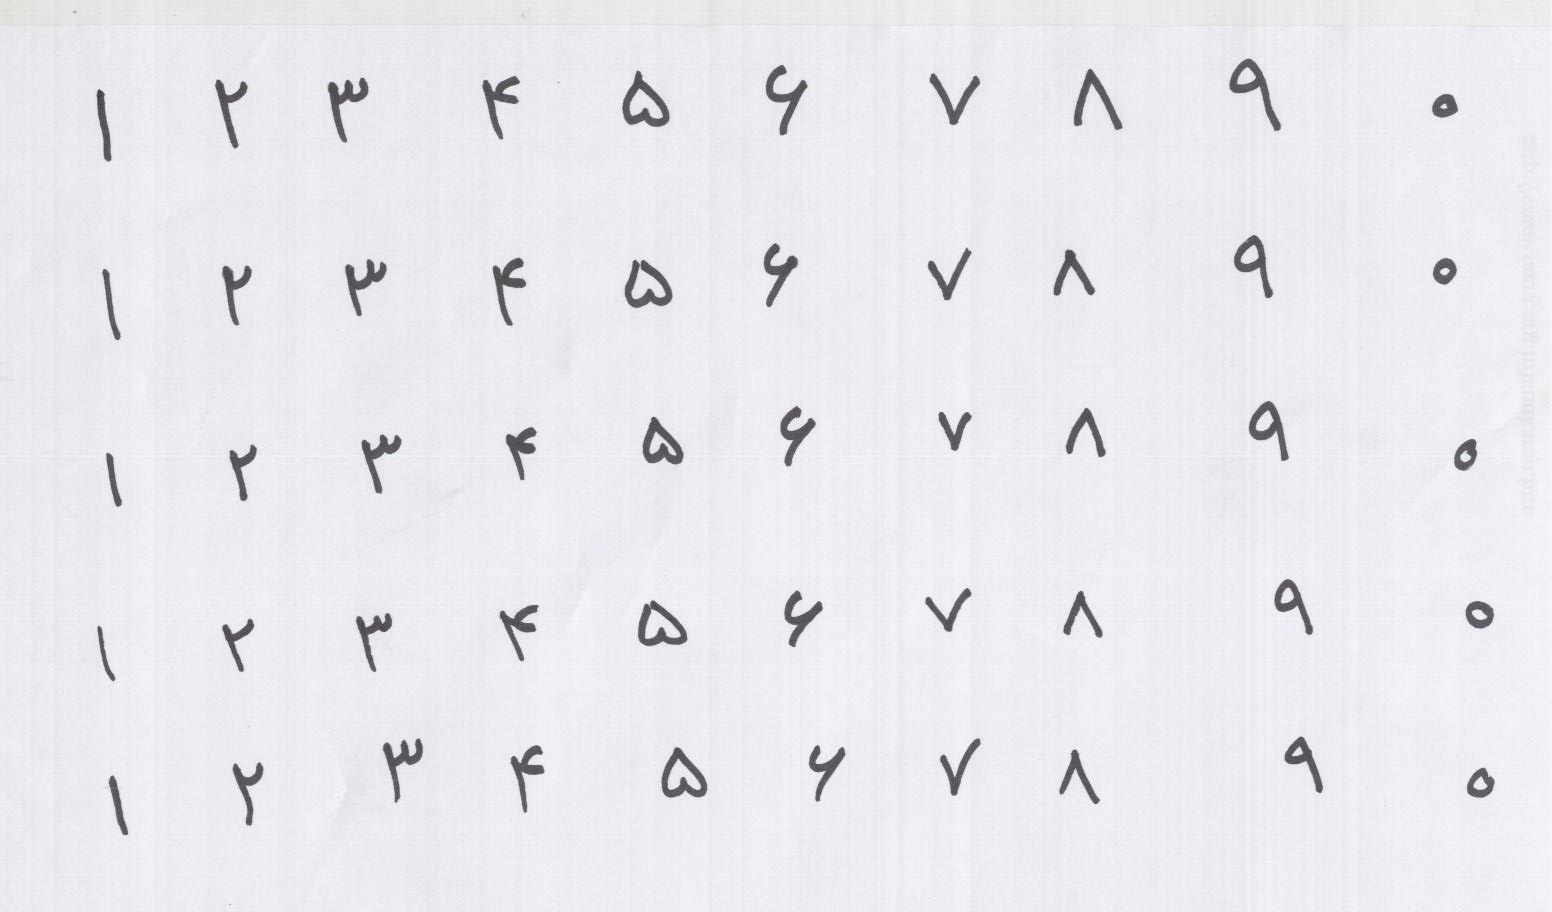 ۱ ۲ ۳ ۴ ۵ ۶ ۷ ۸ ۹ ۰
۱ ۲ ۳ ۴ ۵ ۶ ۷ ۸ ۹ ۰
۱ ۲ ۳ ۴ ۵ ۶ ۷ ۸ ۹ ۰
۱ ۲ ۳ ۴ ۵ ۶ ۷ ۸ ۹ ۰
۱ ۲ ۳ ۴ ۵ ۶ ۷ ۸ ۹ ۰